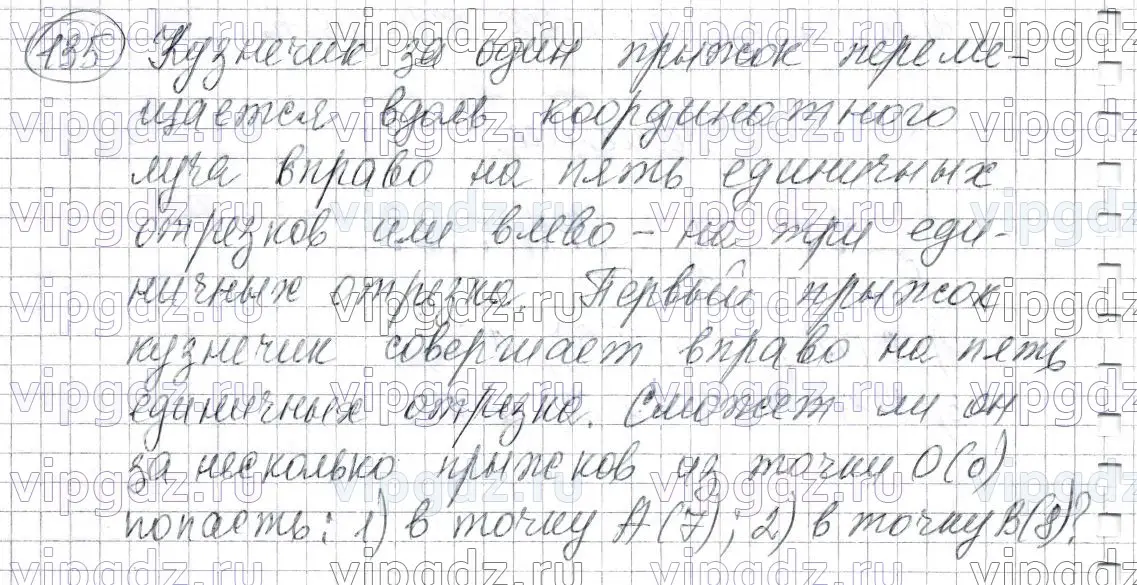 135 Кузнечик за один прыжок переме-
щается вдоль координатного
луча вправо на пять единичных
отрезков или влево – на три еди-
ничных отрезка. Первый прыжок
кузнечик совершает вправо на пять
единичных отрезка. Сможет ли он
за несколько прыжков из точки O(0)
попасть: 1) в точку A(7); 2) в точку B(8)?